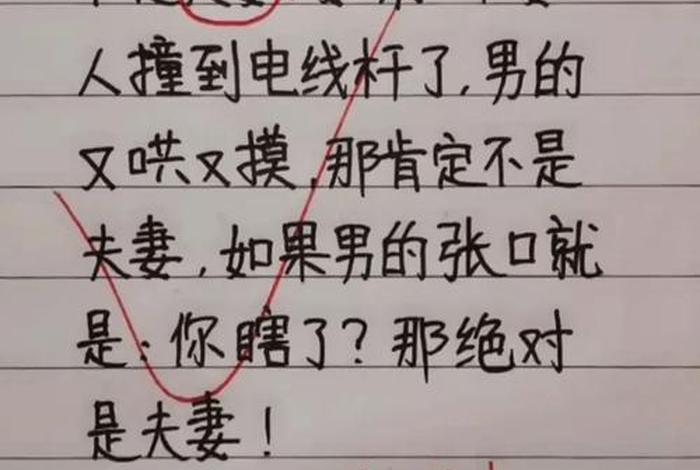 人撞到电线杆了,男的
又哄又摸,那肯定不是
夫妻,如果男的张口就
是:你瞎了?那绝对
是夫妻!